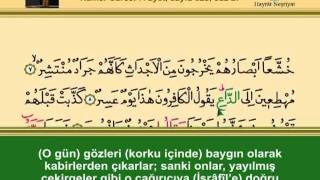 Hayrât Neşriyat
خُشَّعًا اَبْصَارُهُمْ يَخْرُجُونَ مِنَ الْاَجْدَاثِ كَاَنَّهُمْ جَرَادٌ مُنْتَشِرٌۙ ﴿٧﴾
مُهْطِع۪ينَ اِلَى الدَّاعِۜ يَقُولُ الْكَافِرُونَ هٰذَا يَوْمٌ عَسِرٌ ﴿٨﴾ كَذَّبَتْ قَبْلَهُمْ
(O gün) gözleri (korku içinde) baygın olarak
kabirlerden çıkarlar; sanki onlar, yayılmış
çekirgeler gibi o çağırıcıya (İsrâfîl'e) doğru